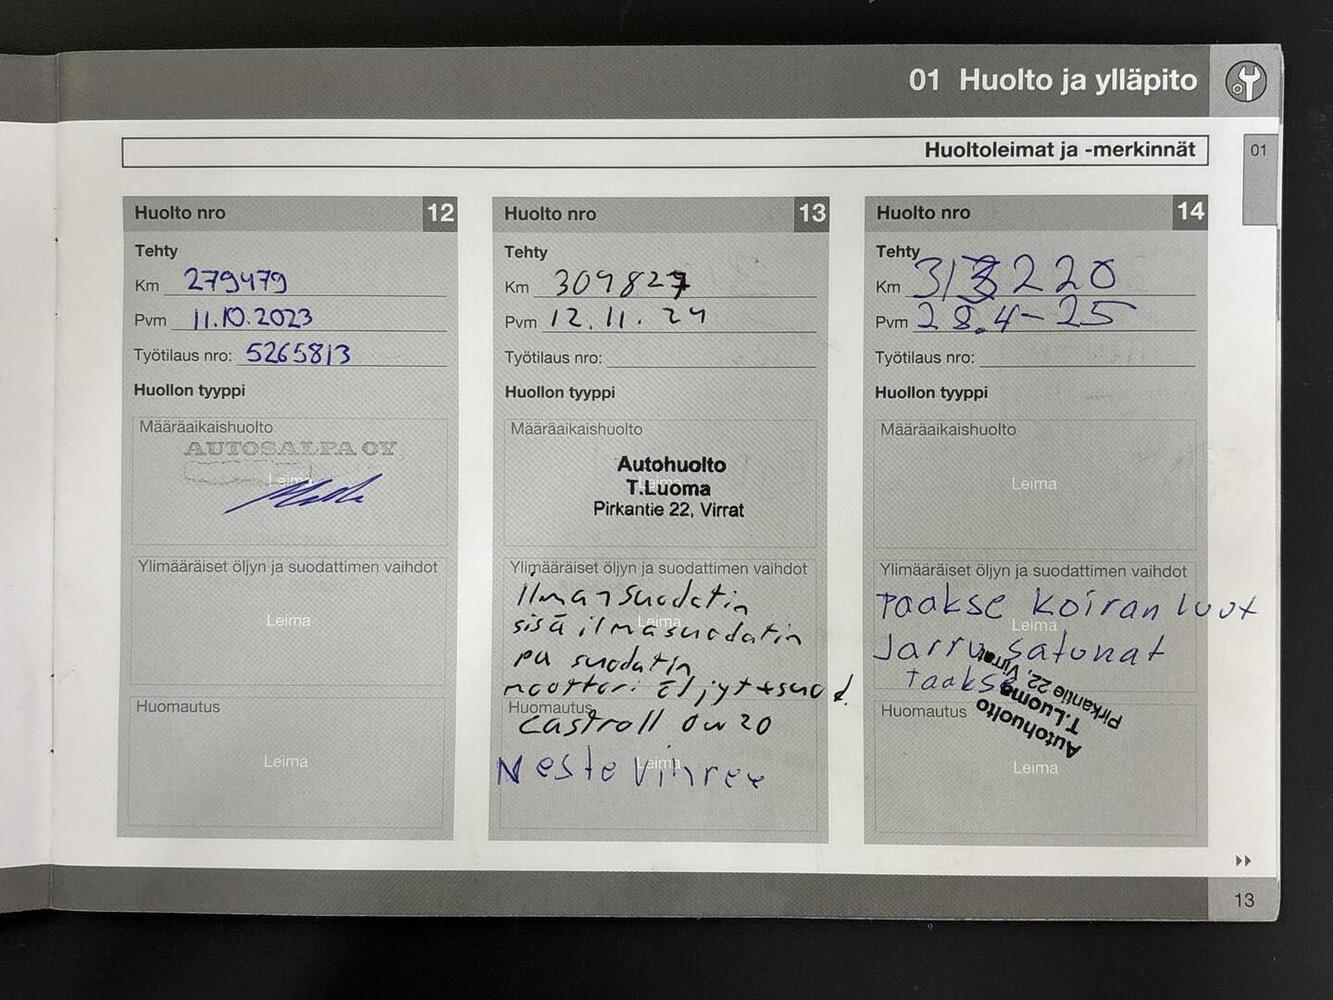 01 Huolto ja ylläpito
Huoltoleimat ja -merkinnät
01
Huolto nro 12
Tehty
Km 279479
Pvm 11.10.2023
Työtilaus nro: 5265813
Huollon tyyppi
Määräaikaishuolto
AUTOSALPA OY
Leima
Ylimääräiset öljyn ja suodattimen vaihdot
Leima
Huomautus
Leima
Huolto nro 13
Tehty
Km 309827
Pvm 12.11.24
Työtilaus nro:
Huollon tyyppi
Määräaikaishuolto
Leima
Autohuolto
T.Luoma
Pirkantie 22, Virrat
Ylimääräiset öljyn ja suodattimen vaihdot
ilmansuodatin
Leima
sisä ilmasuodatin
pa suodatin
moottori öljyt+suod.
Huomautus
castroll 0w20
Leima
Neste vihree
Huolto nro 14
Tehty
Km 313220
Pvm 28.4-25
Työtilaus nro:
Huollon tyyppi
Määräaikaishuolto
Leima
Ylimääräiset öljyn ja suodattimen vaihdot
taakse koiran luut
Leima
Jarru satunat
taakse
Autohuolto
T.Luoma
Pirkantie 22, Virrat
Huomautus
Leima
13